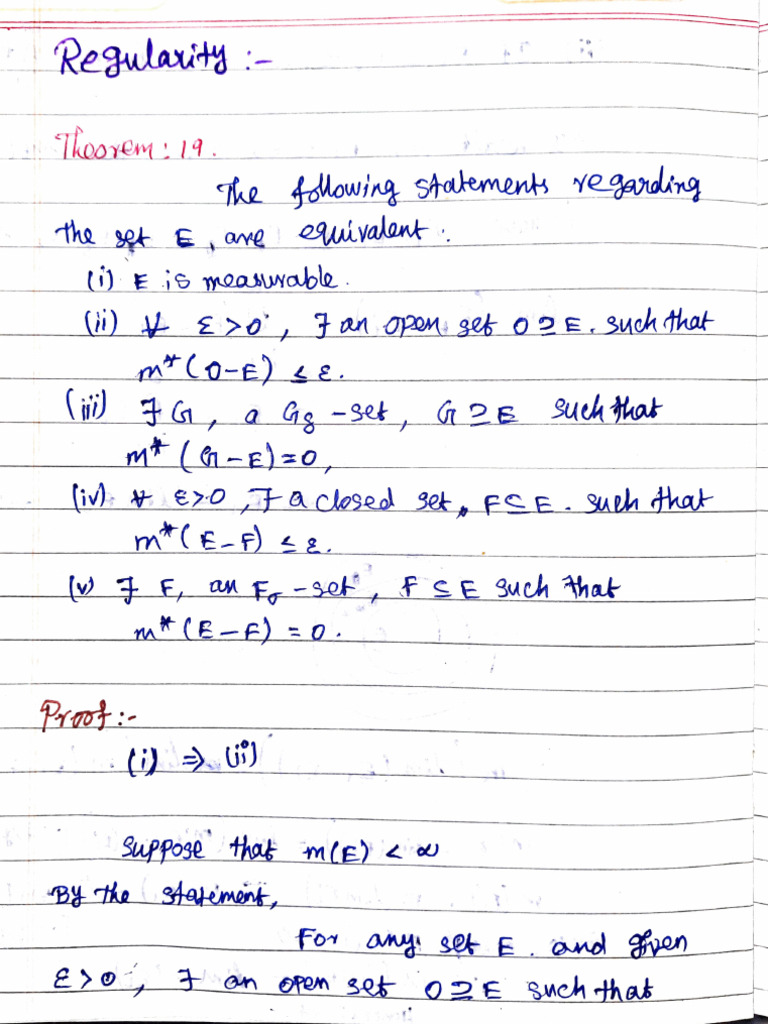 Regularity :-
Theorem : 19.
The following statements regarding
the set E, are equivalent.
(i) E is measurable.
(ii) ∀ ε > 0, ∃ an open set O ⊇ E. such that
m*(O-E) ≤ ε.
(iii) ∃ G, a Gδ -set, G ⊇ E such that
m* (G-E) = 0,
(iv) ∀ ε > 0, ∃ a closed set, F ⊆ E. such that
m*(E-F) ≤ ε.
(v) ∃ F, an Fσ -set, F ⊆ E such that
m*(E-F) = 0.
Proof :-
(i) ⇒ (ii)
Suppose that m(E) < ∞
By the statement,
For any set E. and given
ε > 0, ∃ an open set O ⊇ E such that